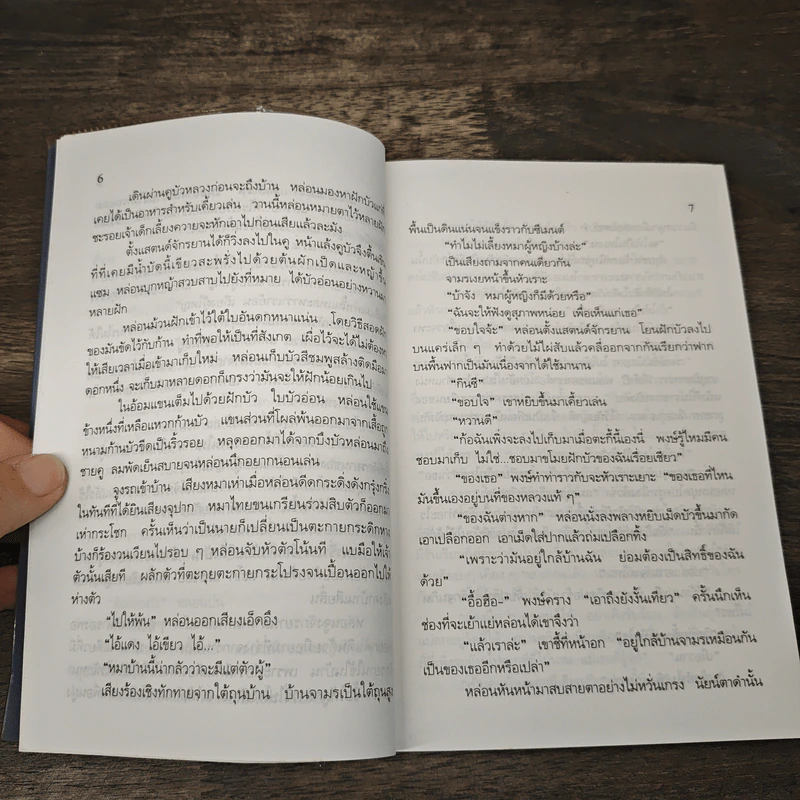 6
เดินผ่านคูบัวหลวงก่อนจะถึงบ้าน หล่อนมองหาฝักบัวแก่ที่
เคยได้เป็นอาหารสำหรับเคี้ยวเล่น วานนี้หล่อนหมายตาไว้หลายฝัก
ชะรอยเจ้าเด็กเลี้ยงควายจะหักเอาไปก่อนเสียแล้วละมัง
ตั้งแสตนด์จักรยานได้ก็วิ่งลงไปในคู หน้าแล้งคูบัวจึงตื้นเขิน
ที่ที่เคยมีน้ำบัดนี้เขียวสะพรั่งไปด้วยต้นผักเป็ดและหญ้าขึ้น
แซม หล่อนบุกหญ้าสวบสาบไปยังที่หมาย ได้บัวอ่อนอย่างหวานมา
หลายฝัก
หล่อนม้วนฝักเข้าไว้ใต้ใบอันดกหนาแน่น โดยวิธีสอดฝัก
ของมันขัดไว้กับก้าน ทำที่พอให้เป็นที่สังเกต เผื่อไว้จะได้ไม่ต้องหา
ให้เสียเวลาเมื่อเข้ามาเก็บใหม่ หล่อนเก็บบัวสีชมพูสล้างติดมือมา
ดอกหนึ่ง จะเก็บมาหลายดอกก็เกรงว่ามันจะให้ฝักน้อยเกินไป
ในอ้อมแขนเต็มไปด้วยฝักบัว ใบบัวอ่อน หล่อนใช้แขน
ข้างหนึ่งที่เหลือแหวกก้านบัว แขนส่วนที่โผล่พ้นออกมาจากเสื้อถูก
หนามก้านบัวขีดเป็นริ้วรอย หลุดออกมาได้จากบึงบัวหล่อนมาถึง
ชายคู ลมพัดเย็นสบายจนหล่อนนึกอยากนอนเล่น
จูงรถเข้าบ้าน เสียงหมาเห่าเมื่อหล่อนดีดกระดิ่งดังกรุ๋งกริ๋ง
ในทันทีที่ได้ยินเสียงจุปาก หมาไทยขนเกรียนร่วมสิบตัวก็ออกมา
เห่ากระโชก ครั้นเห็นว่าเป็นนายก็เปลี่ยนเป็นตะกายกระดิกหาง
บ้างก็ร้องวนเวียนไปรอบ ๆ หล่อนจับหัวตัวโน้นที แบมือให้เจ้า
ตัวนั้นเสียที ผลักตัวที่ตะกุยตะกายกระโปรงจนเปื้อนออกไปให้
ห่างตัว
“ไปให้พ้น” หล่อนออกเสียงเอ็ดอึง
“ไอ้แดง ไอ้เขียว ไอ้...”
“หมาบ้านนี้น่ากลัวว่าจะมีแต่ตัวผู้”
เสียงร้องเชิงทักทายจากใต้ถุนบ้าน บ้านจามรเป็นใต้ถุนสูง
7
พื้นเป็นดินแน่นจนแข็งราวกับซีเมนต์
“ทำไมไม่เลี้ยงหมาผู้หญิงบ้างล่ะ”
เป็นเสียงถามจากคนเดียวกัน
จามรเงยหน้าขึ้นหัวเราะ
“บ้าจัง หมาผู้หญิงก็มีด้วยหรือ”
“ฉันจะให้ฟังดูสุภาพหน่อย เพื่อเห็นแก่เธอ”
“ขอบใจจ้ะ” หล่อนตั้งแสตนด์จักรยาน โยนฝักบัวลงไป
บนแคร่เล็ก ๆ ทำด้วยไม้ไสับแล้วคลี่ออกจากกันเรียกว่าฟาก
บนพื้นฟากเป็นมันเนื่องจากได้ใช้มานาน
“กินซี”
“ขอบใจ” เขาหยิบขึ้นมาเคี้ยวเล่น
“หวานดี”
“ก้อฉันเพิ่งจะลงไปเก็บมาเมื่อตะกี้นี้เองนี่ พงษ์รู้ไหมมีคน
ชอบมาเก็บ ไม่ใช่...ชอบมาขโมยฝักบัวของฉันเรื่อยเชียว”
“ของเธอ” พงษ์ทำท่าราวกับจะหัวเราะเยาะ “ของเธอที่ไหน
มันขึ้นเองอยู่บนที่ของหลวงแท้ ๆ”
“ของฉันต่างหาก” หล่อนนั่งลงพลางหยิบเม็ดบัวขึ้นมากัด
เอาเปลือกออก เอาเม็ดใส่ปากแล้วถ่มเปลือกทิ้ง
“เพราะว่ามันอยู่ใกล้บ้านฉัน ย่อมต้องเป็นสิทธิ์ของฉัน
ด้วย”
“อื้อฮือ-” พงษ์คราง “เอาถึงยังงั้นเทียว” ครั้นนึกเห็น
ช่องที่จะเย้าแย่หล่อนได้เขาจึงว่า
“แล้วเราล่ะ” เขาชี้ที่หน้าอก “อยู่ใกล้บ้านจามรเหมือนกัน
เป็นของเธออีกหรือเปล่า”
หล่อนหันหน้ามาสบสายตาอย่างไม่หวั่นเกรง นัยน์ตาดำนั้น